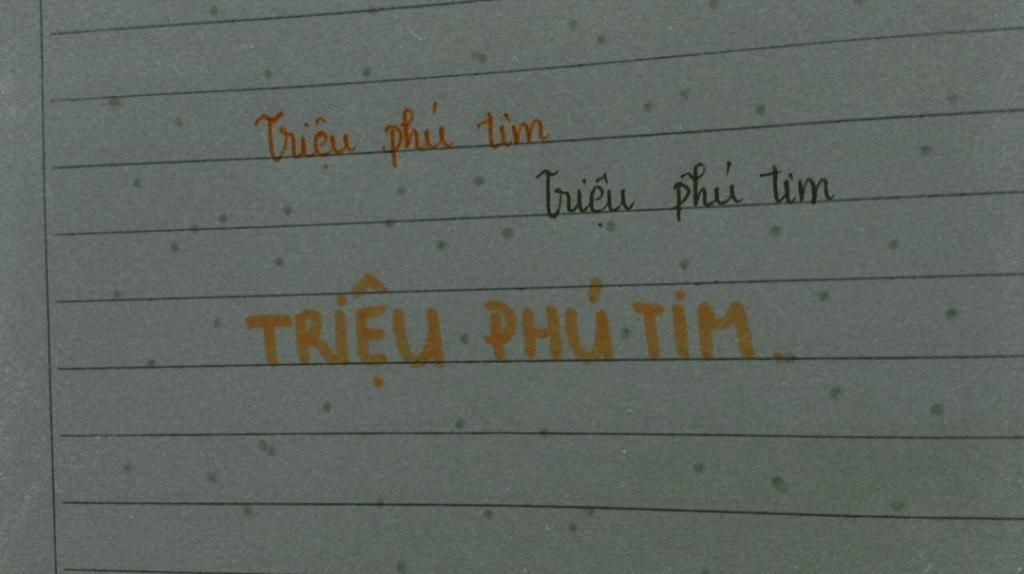 Triệu phú tim
Triệu phú tim
TRIỆU PHÚ TIM.